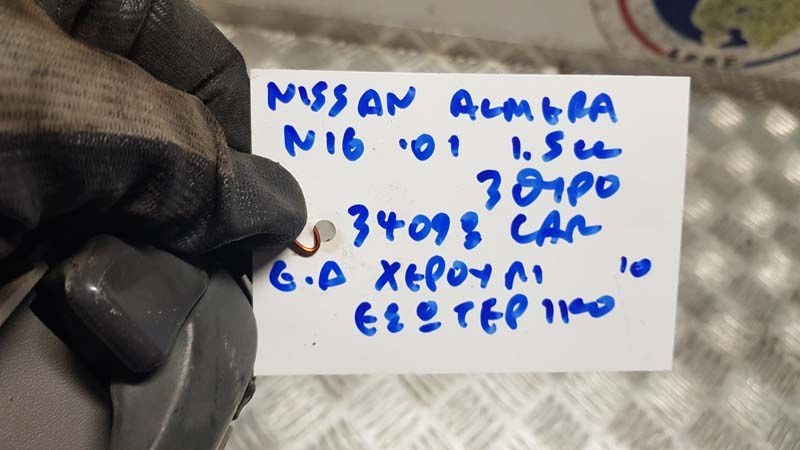 NISSAN ALMERA
N16 '01 1.5cc
3 ΘΥΡΟ
34093 CAR
Ε.Δ ΧΕΡΟΥΛΙ '10
ΕΞΩΤΕΡΙΚΟ